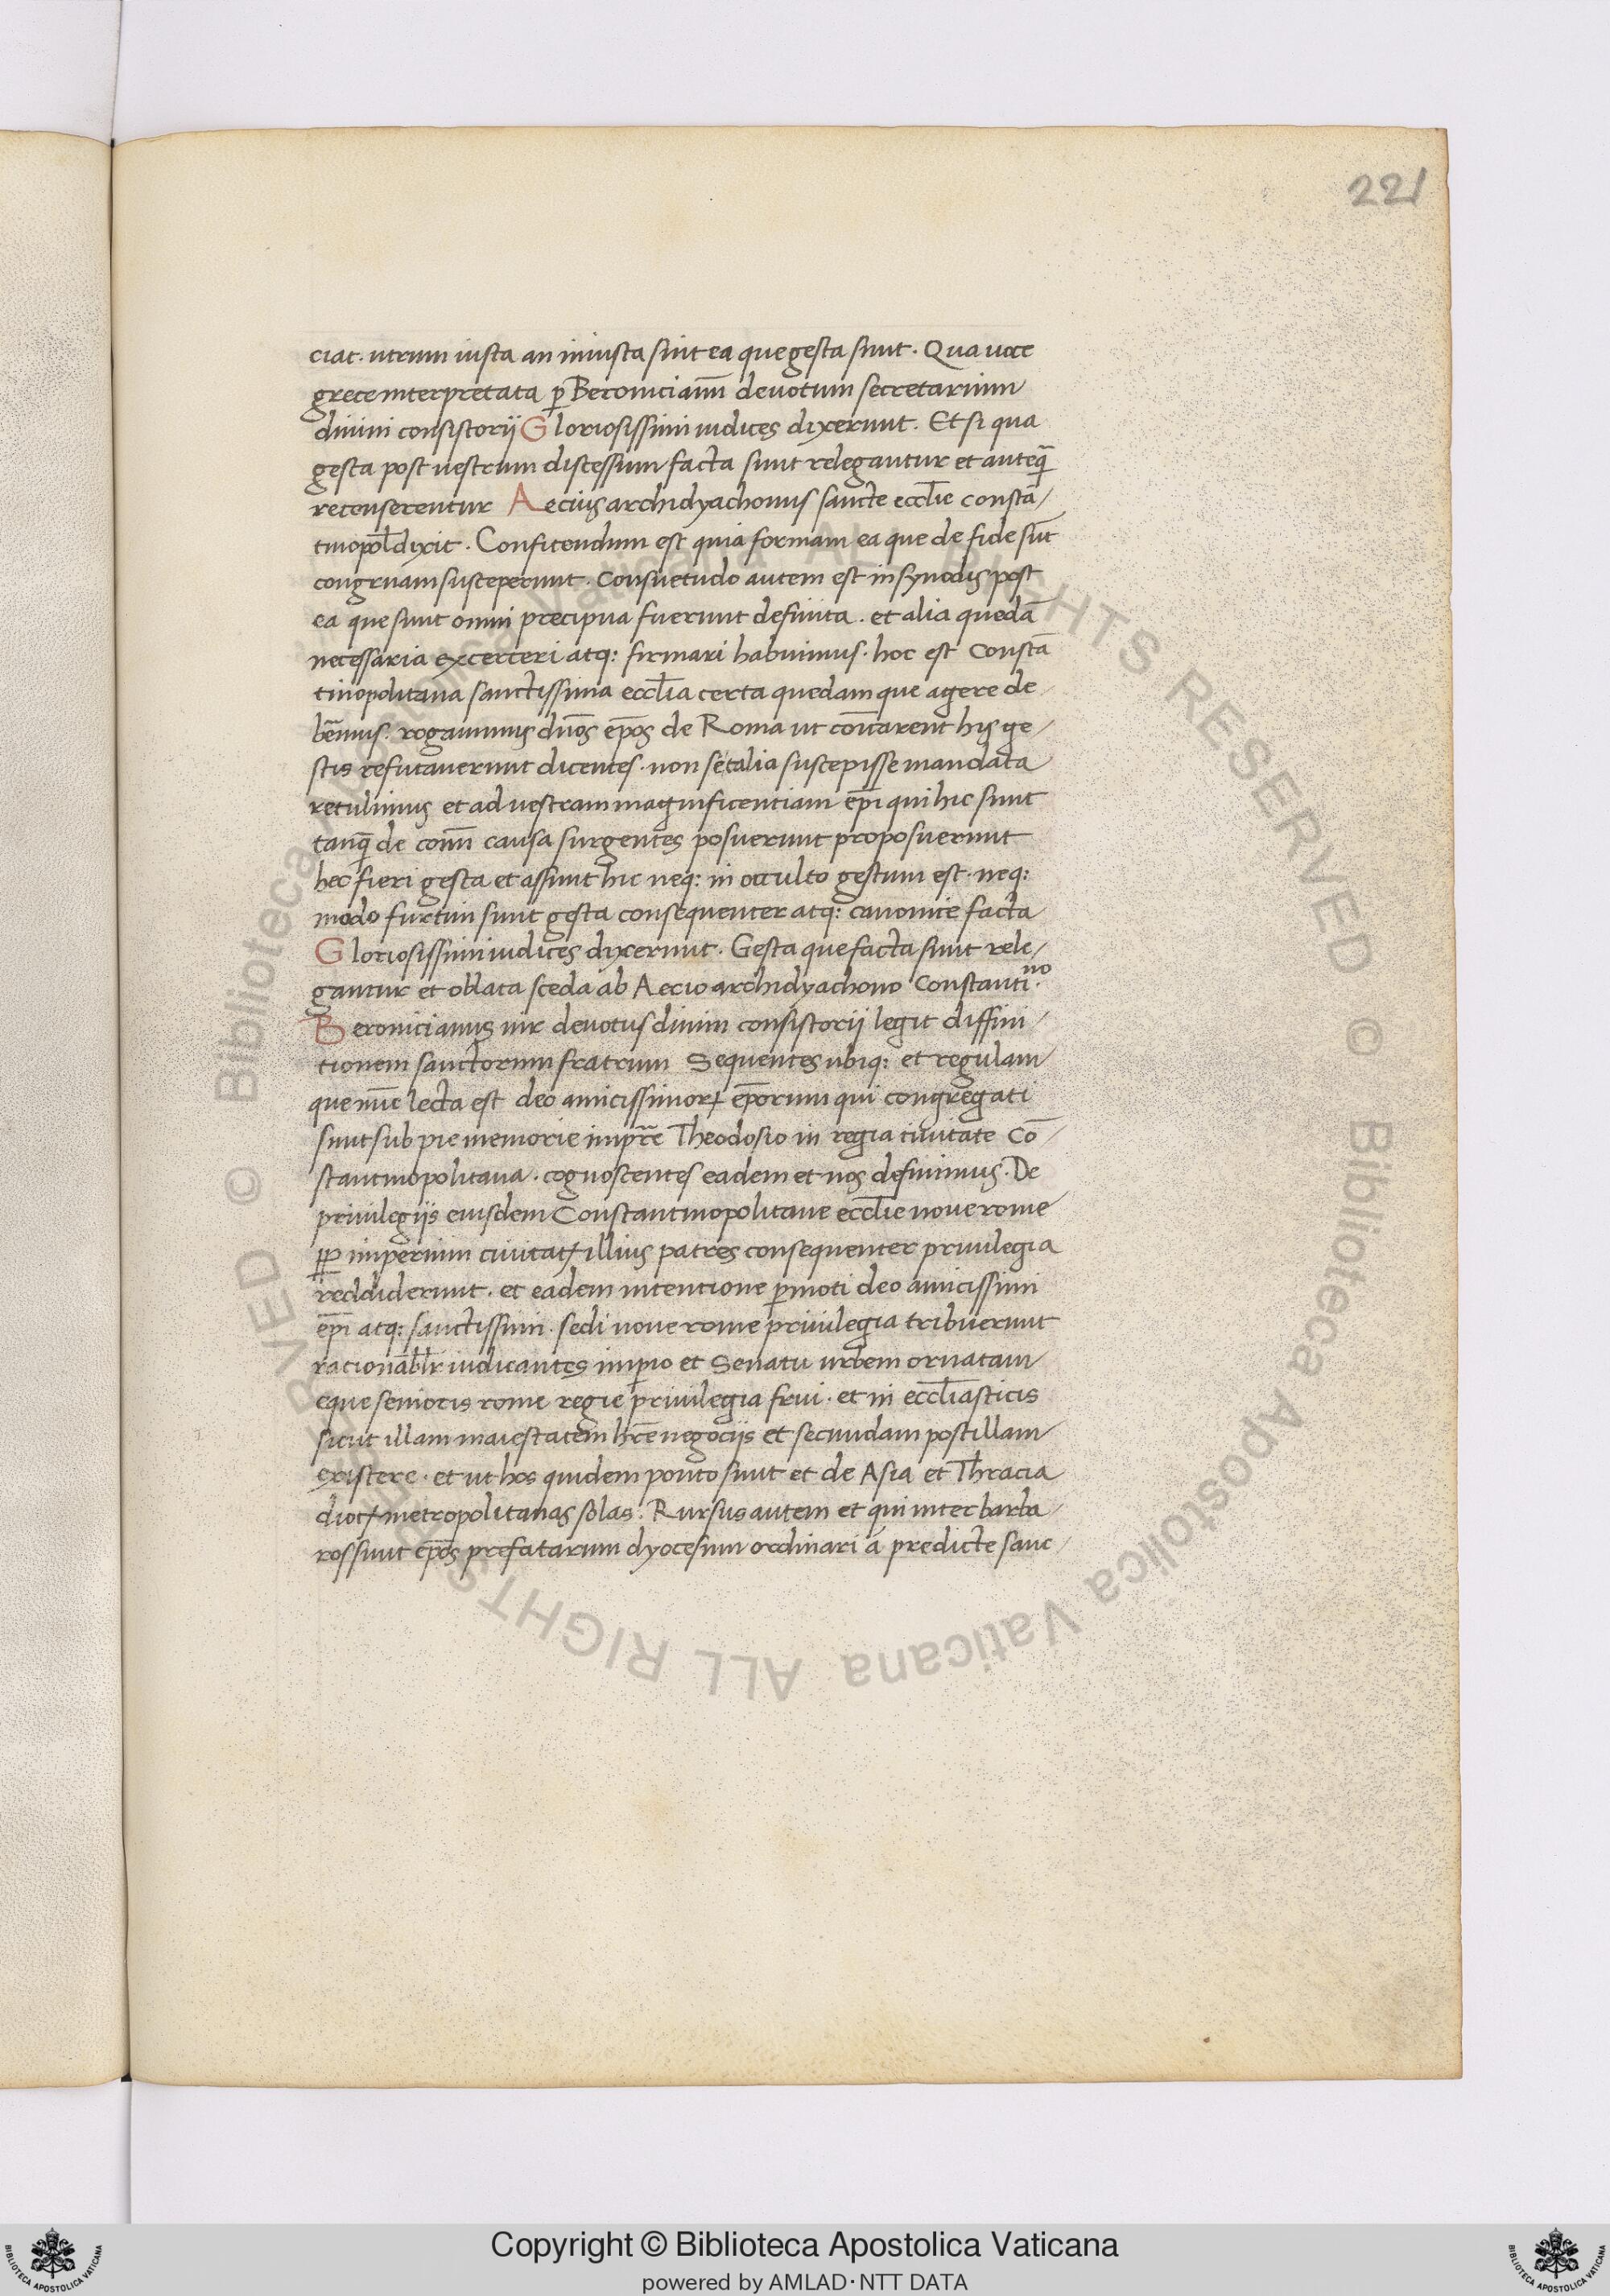 221
ciat. utrum iusta an iniusta sint ea que gesta sunt. Qua uoce
grece interpretata p̲ Beroniciānū devotum secretarium
diuini consistorii Gloriosissimi iudices dixerunt. Et si qua
gesta post uestrum discessum facta sunt relegantur et anteq̄
recenserentur Aecius archidyachonus sancte eccl̄ie constā/
tinopol̄ dixit. Confitendum est quia formam ea que de fide sūt
congruam susceperunt. Consuetudo autem est in synodis post
ea que sunt omni precipua fuerunt definita. et alia quedā
necessaria excerceri atq: firmari habuimus. hoc est Constā
tinopolitana sanctissima eccl̄ia certa quedam que agere de/
bēmus. rogauimus dn̄os ep̄os de Roma ut com̄carent his ge/
stis refutauerunt dicentes. non se talia suscepisse mandata
retulimus et ad uestram magnificentiam ep̄i qui hic sunt
tanq̄ de com̄ causa surgentes posuerunt proposuerunt
hec fieri gesta et assunt hic neq: in occulto gestum est. neq:
modo furtim sunt gesta consequenter atq: canonice facta
Gloriosissimi iudices dyxerunt. Gesta que facta sunt rele/
gantur et oblata sceda ab Aecio archidyachono Constanti.no
Beronicianus uir devotus diuini consistorii legit diffini/
tionem sanctorum fratrum Sequentes ubiq: et regulam
que nūc lecta est deo amicissimorꝝ ep̄orum qui congregati
sunt sub pie memorie imp̄re Theodosio in regia ciuitate Cō/
stantinopolitana. cognoscentes eadem et nos definimus. De
priuilegiis eiusdem Constantinopolitane eccl̄ie noue rome
pp̄ imperium ciuitatꝭ illius patres consequenter priuilegia
reddiderunt. et eadem intentione p̲moti deo amicissimi
ep̄i atq: sanctissimi. sedi noue rome priuilegia tribuerunt
racionabl̄r iudicantes imp̲io et Senatu urbem ornatam
eque senioris rome regie priuilegia frui. et in eccl̄iasticis
sicut illam maiestatem hr̄e negociis et secundam post illam
existere. et ut hos quidem ponto sunt et de Asia et Thracia
diocꝭ metropolitanas solas. Rursus autem et qui inter barba/
ros sunt ep̄os prefatarum dyocesum ordinari á predicte sanc/
© Biblioteca Apostolica Vaticana ALL RIGHTS RESERVED © Biblioteca Apostolica Vaticana ALL RIGHTS RESERVED
Copyright © Biblioteca Apostolica Vaticana
powered by AMLAD·NTT DATA
BIBLIOTECA APOSTOLICA VATICANA
BIBLIOTECA APOSTOLICA VATICANA